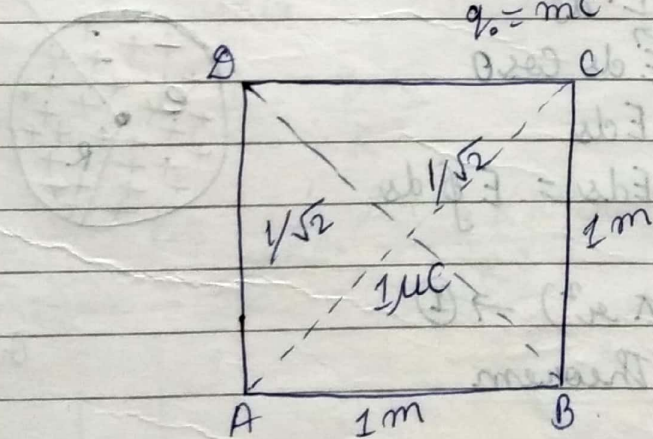 q₀ = mC
D C
1/√2
1/√2
1 m
1μC
A 1m B